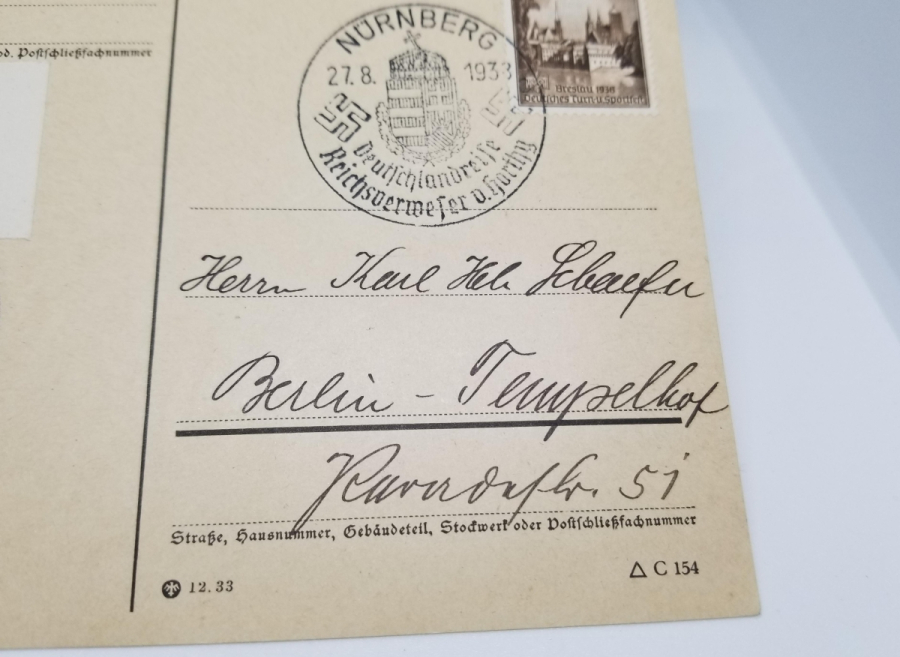 od. Postschließfachnummer
NÜRNBERG
27.8. 1938
Deutschlandreise
Reichsverweser v. Horthy
Breslau 1938
Deutsches Turn-u. Sportfest
Herrn Karl Schaefer
Berlin - Tempelhof
51
Straße, Hausnummer, Gebäudeteil, Stockwerk oder Postschließfachnummer
12.33
△ C 154